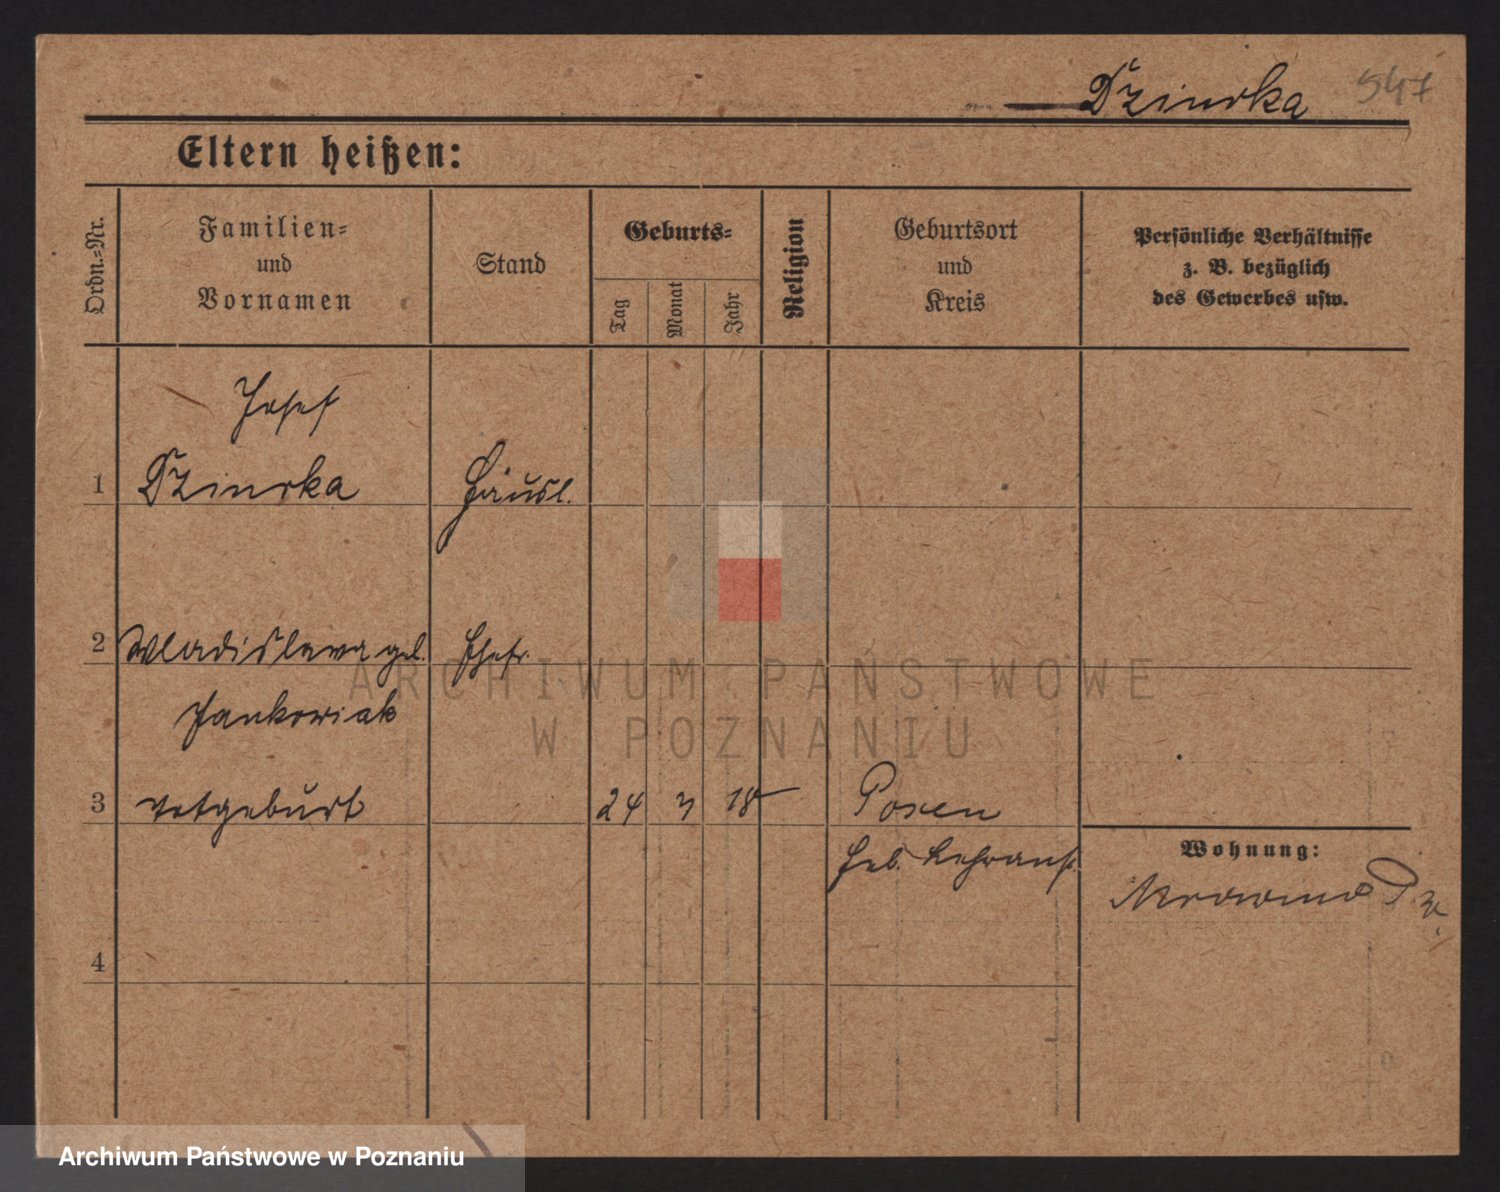 Dziurka 547
Eltern heißen:
Ordn.-Nr.
Familien-
und
Vornamen
Stand
Geburts-
Tag
Monat
Jahr
Religion
Geburtsort
und
Kreis
Persönliche Verhältnisse
z. B. bezüglich
des Gewerbes usw.
Josef
1 Dziurka Häusl.
2 Wladislawa geb. Ehefr.
Jankowiak
3 totgeburt 24 3 18 Posen
Heb. Lehranst.
Wohnung:
4
ARCHIWUM PAŃSTWOWE
W POZNANIU
Archiwum Państwowe w Poznaniu